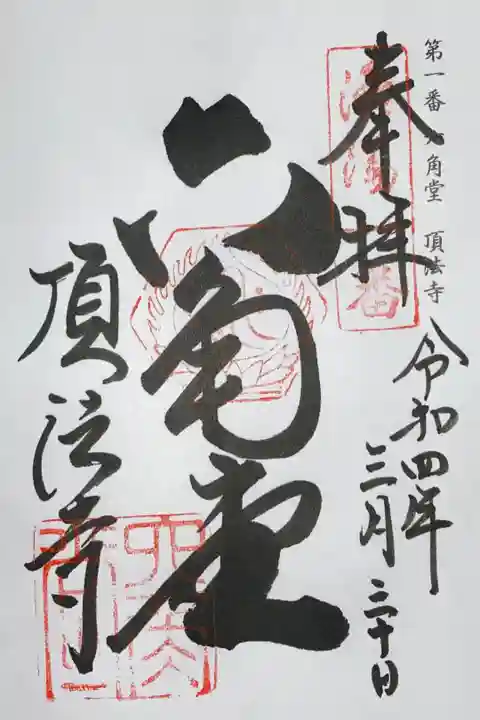 第一番 六角堂 頂法寺
奉拝
令和四年
三月三十日
六角堂
頂法寺